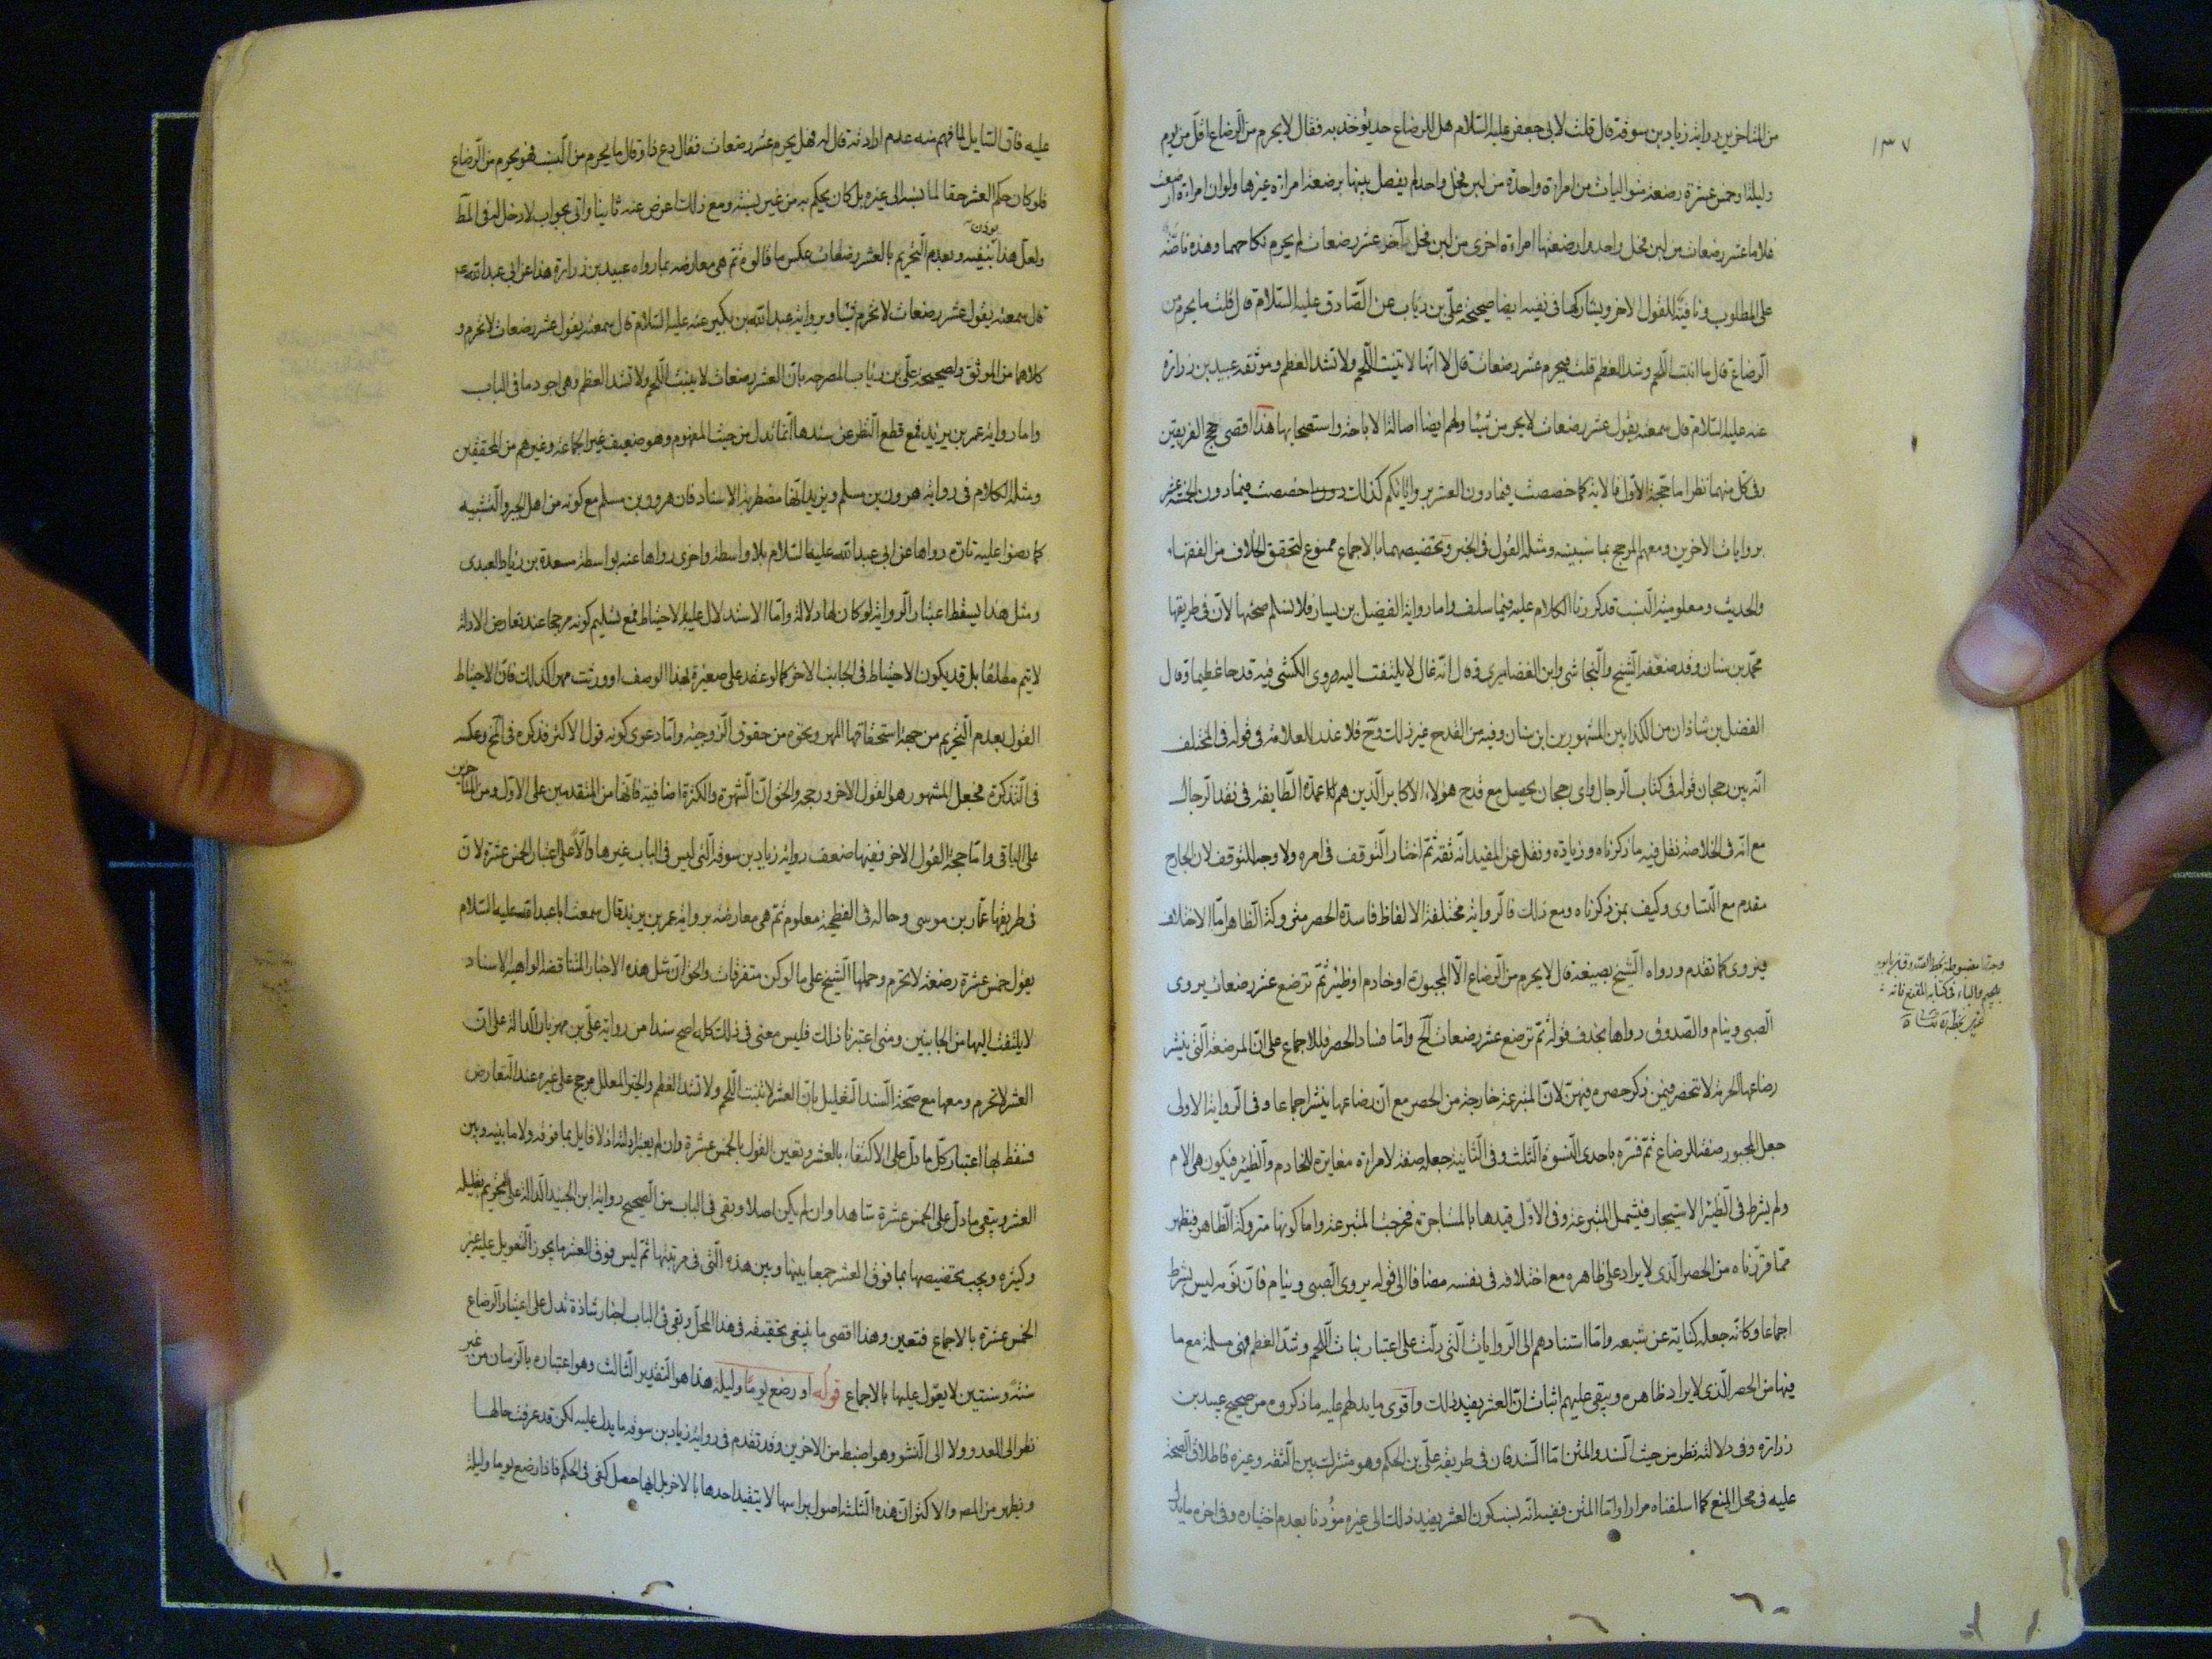 ١٣٧
من المتاخرين رواية زياد بن سوقة قال قلت لابى جعفر عليه السلام هل للرضاع حد يؤخذ به فقال لا يحرم من الرضاع اقل من يوم
وليلة او خمس عشرة رضعة متواليات من امراءة واحدة من لبن فحل واحد لم يفصل بينها برضعة امراءة غيرها ولو ان امراءة ارضعت
غلاما عشر رضعات من لبن فحل واحد وارضعتها امراءة اخرى من لبن فحل آخر عشر رضعات لم يحرم نكاحهما وهذه ناصة
على المطلوب ونافية للقول الاخر ويشاركها فى نفيه ايضا صحيحة على بن رئاب عن الصادق عليه السلام قال قلت ما يحرم من
الرضاع قال ما انبت اللحم وشد العظم قلت فيحرم عشر رضعات قال لا انها لا تنبت اللحم ولا تشد العظم وموثقة عبيد بن زرارة
عنه عليه السلام قال سمعته يقول عشر رضعات لا يحرمن شيئا ولهم ايضا اصالة الاباحة واستصحابها هذا اقصى حجج الفريقين
وفى كل منهما نظر اما حجة الاول فلانه كما خصصت فيما دون العشر برواياتكم كذلك خصصت فيما دون الخمسة عشر
بروايات الاخرين ومعهم المرجح بما سنبينه ومثله القول فى الخبر وتخصيصهما بالاجماع ممنوع لتحقق الخلاف من الفقهاء
والحديث ومعلومية النسب قد كررنا الكلام عليه فيما سلف واما رواية الفضيل بن يسار فلا نسلم صحتها لان فى طريقها
محمد بن سنان وقد ضعفه الشيخ والنجاشى وابن الغضايرى وقال انه غال لا يلتفت اليه وروى الكشى فيه قدحا عظيما وقال
الفضل بن شاذان من الكذابين المشهورين ابن سنان وفيه من القدح غير ذلك وح فلا عذر للعلامة فى قوله فى المختلف
انه بين رجحان قوله فى كتاب الرجال واى رجحان يحصل مع قدح هؤلاء الاكابر الذين هم عمدة الطايفة فى نقد الرجال
مع انه فى الخلاصة نقل فيه ما ذكرناه وزيادة ونقل عن المفيد انه ثقة ثم اختار التوقف فى امره ولا وجه للتوقف لان الجارح
مقدم مع التساوى وكيف بمن ذكرناه ومع ذلك فالرواية مختلفة الالفاظ فاسدة الحصر متروكة الظاهر اما الاختلاف
فيروى كما تقدم ورواه الشيخ بصيغة قال لا يحرم من الرضاع الا المجبورة او خادم او ظئر ثم ترضع عشر رضعات يروى
الصبى وينام والصدوق رواها بحذف قوله ثم ترضع عشر رضعات الخ واما فساد الحصر فللاجماع على ان المرضعة التى ينشر
رضاعها الحرمة لا تنحصر فيمن ذكر حصره فيهن لان المتبرعة خارجة من الحصر مع ان رضاعها ينشر اجماعا وفى الرواية الاولى
جعل المجبور صفة للرضاع ثم فسره باحدى النسوة الثلث وفى الثانية جعله صفة لامراءة مغايرة للخادم والظئر فتكون هى الام
ولم يشترط فى الظئر الاستيجار فتشمل المتبرعة وفى الاول قيدها بالمستاجرة فخرجت المتبرعة واما كونها متروكة الظاهر فيظهر
مما قررناه من الحصر الذى لا يراد على ظاهره مع اختلافه فى نفسه مضافا الى قوله يروى الصبى وينام فان نومه ليس بشرط
اجماعا وكانه جعله كناية عن شبعه واما استنادهم الى الروايات التى دلت على اعتبار نبات اللحم وشد العظم فهى مسلمة مع ما
فيها من الحصر الذى لا يراد ظاهره ويبقى عليهم اثبات ان العشر يفيد ذلك واقوى ما يدلهم عليه ما ذكروه من صحيح عبيد بن
زرارة وفى دلالته نظر من حيث السند والمتن اما السند فان فى طريقه على بن الحكم وهو مشترك بين الثقة وغيره فاطلاق الصحة
عليه فى محل المنع كما اسلفناه مرارا واما المتن ففيه انه نسب كون العشر يفيد ذلك الى غيره مؤذنا بعدم اختياره وفى اخره ما يدل
وجدتها مضبوطة بخط الصدوق
بالجيم والباء فى كتابه المقنع فانه
عليه فان السايل لما فهم منه عدم ارادته قال له فهل يحرم عشر رضعات فقال دع ذا وقال ما يحرم من النسب فهو يحرم من الرضاع
فلو كان حكم العشر حقا لما نسبه الى غيره بل كان يحكم به من غير نسبة ومع ذلك اعرض عنه ثانيا واتى بجواب لا دخل له فى المط
ولعل هذا بنفسه يؤذن بعدم التحريم بالعشر رضعات عكس ما قالوه ثم هى معارضة بما رواه عبيد بن زرارة هذا عن ابى عبد الله ع
قال سمعته يقول عشر رضعات لا تحرم شيئا وبرواية عبد الله بن بكير عنه عليه السلام قال سمعته يقول عشر رضعات لا تحرم و
كلاهما من الموثق وبصحيحة على بن رئاب المصرحة بان العشر رضعات لا ينبت اللحم ولا تشد العظم وهى اجود ما فى الباب
واما رواية عمر بن يزيد فمع قطع النظر عن سندها انما تدل من حيث المفهوم وهو ضعيف عند الجماعة وغيرهم من المحققين
ومثله الكلام فى رواية هرون بن مسلم ويزيد انها مضطربة الاسناد فان هرون بن مسلم مع كونه من اهل الجبر والتشبيه
كما نصوا عليه تارة رواها عن ابى عبد الله عليه السلام بلا واسطة واخرى رواها عنه بواسطة مسعدة بن زياد العبدى
ومثل هذا يسقط اعتبار الرواية لو كان لها دلالة واما الاستدلال عليه بالاحتياط فمع تسليم كونه مرجحا عند تعارض الادلة
لا يتم مطلقا بل قد يكون الاحتياط فى الجانب الاخر كما لو عقد على صغيرة بهذا الوصف او ورثت مهرا كذلك فان الاحتياط
القول بعدم التحريم من جهة استحقاقها المهر ونحوه من حقوق الزوجية واما دعوى كونه قول الاكثر فذكره فى المخ وعكسه
فى التذكرة فجعل المشهور هو القول الاخر ورجحه والحق ان الشهرة والكثرة اضافية فانها من المتقدمين على الاول ومن المتاخرين
على الباقى واما حجة القول الاخر ففيها ضعف رواية زياد بن سوقة التى ليس فى الباب غيرها دالا على اعتبار الخمس عشرة لان
فى طريقها عمار بن موسى وحاله فى الفطحية معلوم ثم هى معارضة برواية عمر بن يزيد قال سمعت ابا عبد الله عليه السلام
يقول خمس عشرة رضعة لا تحرم وحملها الشيخ على ما لو كن متفرقات والحق ان مثل هذه الاخبار المتناقضة الواهية الاسناد
لا يلتفت اليها من الجانبين ومتى اعتبرنا ذلك فليس معنى فى ذلك كله اصح سندا من رواية على بن مهزيار الدالة على ان
العشر لا تحرم ومعها مع صحة السند التعليل بان العشر لا تنبت اللحم ولا تشد العظم والخبر المعلل مرجح على غيره عند التعارض
فسقط بها اعتبار كل ما دل على الاكتفاء بالعشر وتعين القول بالخمس عشرة وان لم يعتبر ادلته اذ لا قايل بما فوقه ولا ما بينه وبين
العشر ويبقى ما دل على الخمس عشرة شاهدا وان لم يكن اصلا وبقى فى الباب من الصحيح رواية ابن الجنيد الدالة على التحريم بقليله
وكثيره ويجب تخصيصها بما فوق العشر جمعا بينها وبين هذه التى فى مرتبتها ثم ليس فوق العشر ما يجوز التعويل عليه غير
الخمس عشرة بالاجماع فتعين وهذا اقصى ما ينبغى تحقيقه فى هذا المحل وبقى فى الباب اخبار شاذة تدل على اعتبار الرضاع
سنة وسنتين لا يعول عليها بالاجماع قوله او رضع يوما وليلة هذا هو التقدير الثالث وهو اعتباره بالزمان من غير
نظر الى العدد ولا الى النشو وهو اضبط من الاخرين وقد تقدم فى رواية زياد بن سوقه ما يدل عليه لكن قد عرفت حالها
ويظهر من المصـ والاكثر ان هذه الثلثة اصول براسها لا يتقيد احدها بالاخر بل ايها حصل كفى فى الحكم فاذا رضع يوما وليلة